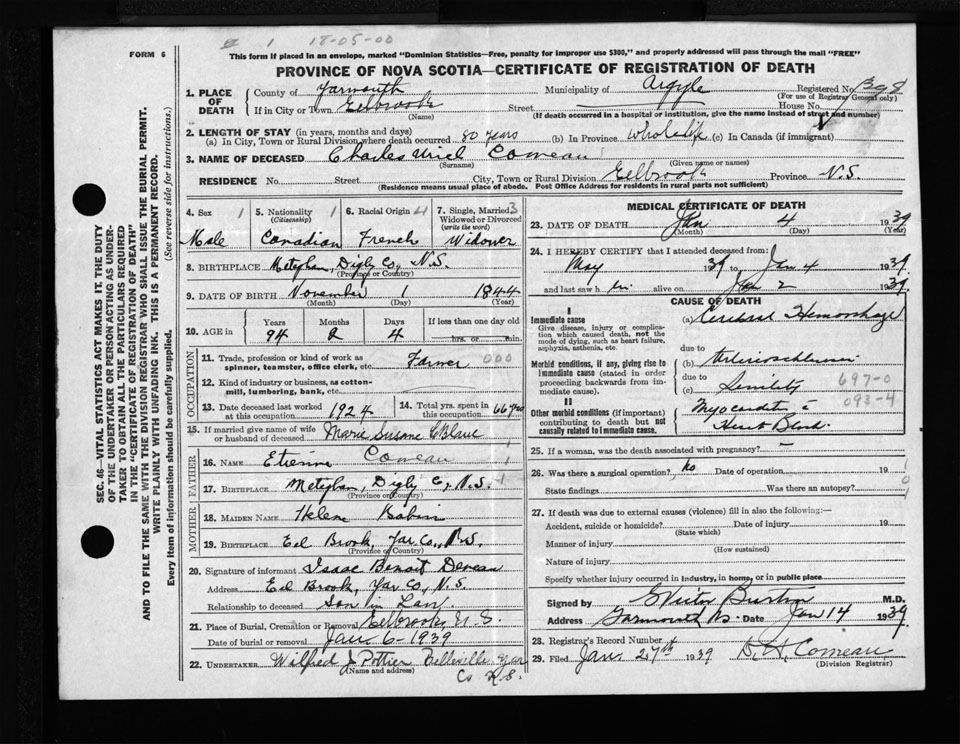 18-05-00
FORM 6
This form if placed in an envelope, marked "Dominion Statistics—Free, penalty for improper use $300," and properly addressed will pass through the mail "FREE"
PROVINCE OF NOVA SCOTIA—CERTIFICATE OF REGISTRATION OF DEATH
1. PLACE OF DEATH
County of Yarmouth Municipality of Argyle Registered No. 398
(For use of Registrar General only)
If in City or Town Eelbrook Street House No.
(Name) (If death occurred in a hospital or institution, give the name instead of street and number)
2. LENGTH OF STAY (in years, months and days)
(a) In City, Town or Rural Division where death occurred 80 years (b) In Province Whole life (c) In Canada (if immigrant)
3. NAME OF DECEASED Charles Uriel Comeau
(Surname) (Given name or names)
RESIDENCE No. Street City, Town or Rural Division Eelbrook Province N.S.
(Residence means usual place of abode. Post Office Address for residents in rural parts not sufficient)
4. Sex 1 5. Nationality 1 6. Racial Origin 4 7. Single, Married 3
(Citizenship) Widowed or Divorced
(write the word)
Male Canadian French Widower
8. BIRTHPLACE Meteghan, Digby Co., N.S.
(Province or Country)
9. DATE OF BIRTH November 1 1844
(Month) (Day) (Year)
10. AGE in Years Months Days If less than one day old
94 2 4 hrs. or min.
OCCUPATION
11. Trade, profession or kind of work as spinner, teamster, office clerk, etc. Farmer 000
12. Kind of industry or business, as cotton-mill, lumbering, bank, etc.
13. Date deceased last worked at this occupation 1924 14. Total yrs. spent in this occupation
15. If married give name of wife or husband of deceased Marie Susane LeBlanc
FATHER
16. NAME Etienne Comeau
17. BIRTHPLACE Meteghan, Digby Co., N.S.
(Province or Country)
MOTHER
18. MAIDEN NAME Helene Babin
19. BIRTHPLACE Eel Brook, Yar Co., N.S.
(Province or Country)
20. Signature of informant Isaac Benoit Deveau
Address Eel Brook, Yar Co, N.S.
Relationship to deceased Son in Law
21. Place of Burial, Cremation or Removal Eelbrook, N.S.
Date of burial or removal Jan 6-1939
22. UNDERTAKER Wilfred J. Pottier Belleville Yar
(Name and address) Co N.S.
MEDICAL CERTIFICATE OF DEATH
23. DATE OF DEATH Jan 4 1939
(Month) (Day) (Year)
24. I HEREBY CERTIFY that I attended deceased from:
May 1939 to Jan 4 1939
and last saw him alive on Jan 2 1939
CAUSE OF DEATH
I
Immediate cause (a) Cerebral Hemorrhage
Give disease, injury or complication which caused death, not the mode of dying, such as heart failure, asphyxia, asthenia, etc.
due to
Morbid conditions, if any, giving rise to immediate cause (stated in order proceeding backwards from immediate cause). (b) Arteriosclerosis
due to
(c) Senility 697-0
093-4
II
Other morbid conditions (if important) contributing to death but not causally related to immediate cause. Myocarditis c Heart Block
25. If a woman, was the death associated with pregnancy? —
26. Was there a surgical operation? No Date of operation 19
State findings Was there an autopsy?
27. If death was due to external causes (violence) fill in also the following:—
Accident, suicide or homicide? Date of injury 19
(State which)
Manner of injury
(How sustained)
Nature of injury
Specify whether injury occurred in industry, in home, or in public place
Signed by Burton M.D.
Address Yarmouth NS Date Jan 14 1939
28. Registrar's Record Number
29. Filed Jan. 27th 1939 D. H. Comeau
(Division Registrar)
SEC. 46—VITAL STATISTICS ACT MAKES IT THE DUTY
OF THE UNDERTAKER OR PERSON ACTING AS UNDER-
TAKER TO OBTAIN ALL THE PARTICULARS REQUIRED
IN THE "CERTIFICATE OF REGISTRATION OF DEATH"
AND TO FILE THE SAME WITH THE DIVISION REGISTRAR WHO SHALL ISSUE THE BURIAL PERMIT.
WRITE PLAINLY WITH UNFADING INK. THIS IS A PERMANENT RECORD.
Every item of information should be carefully supplied. (See reverse side for instructions.)